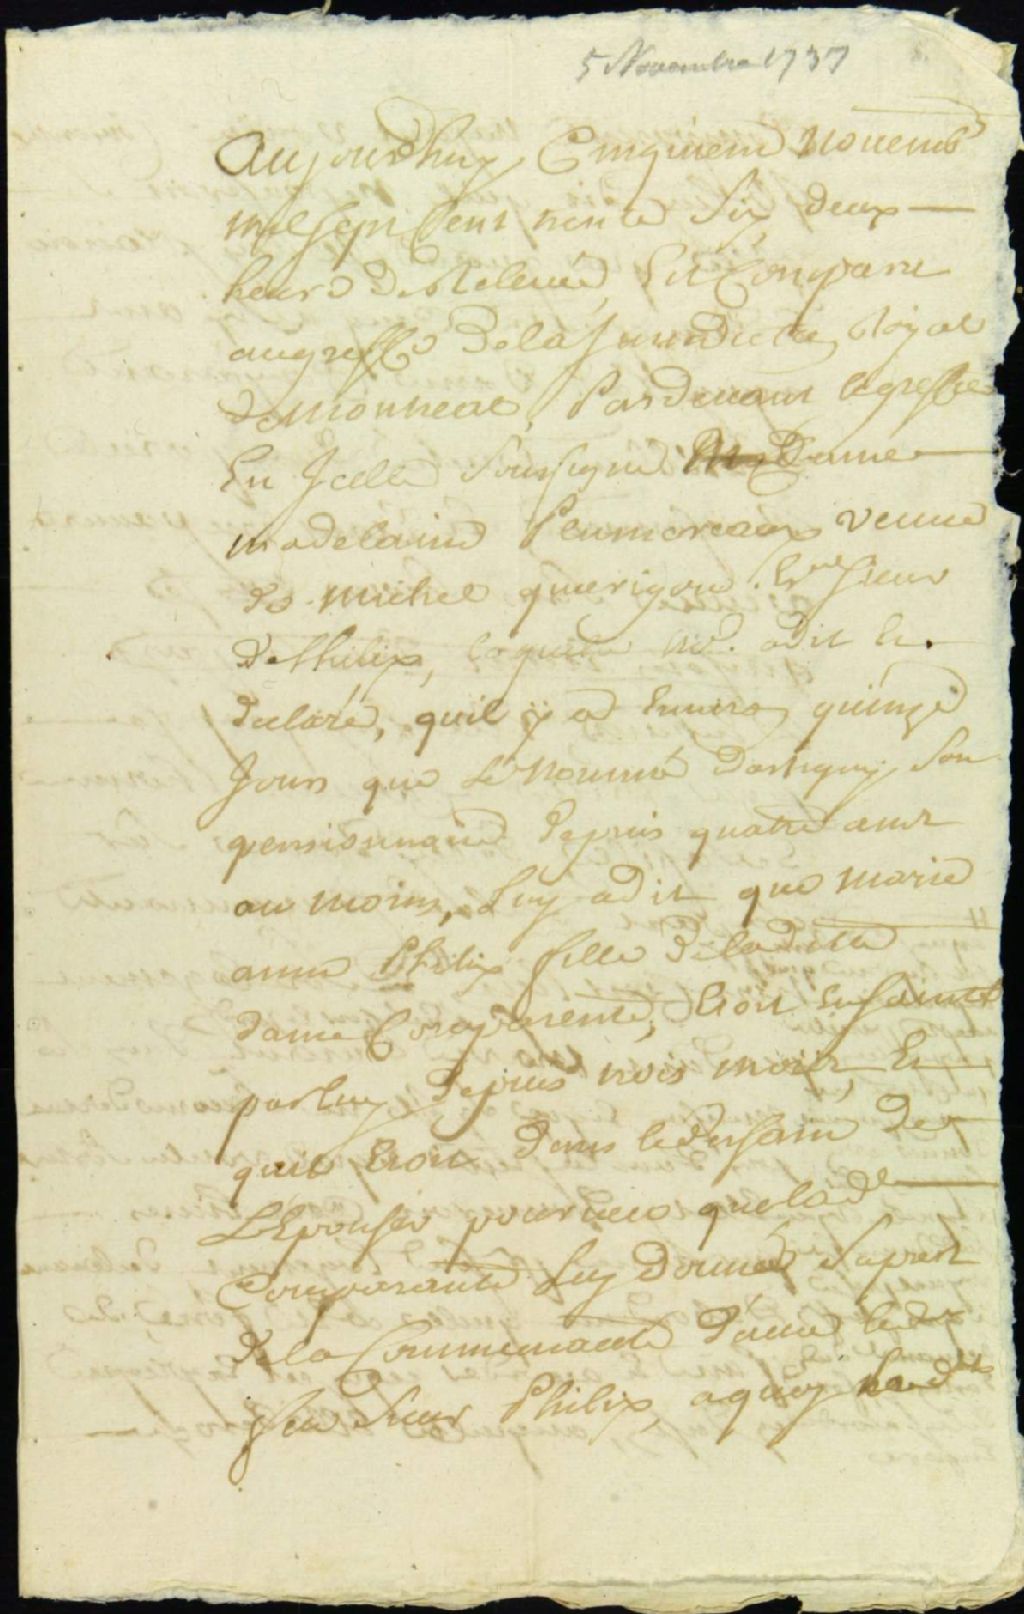 5 Novembre 1737
Aujourdhuy Cinquieme Novemb
mil sept Cent trente Six deux
heure de Relevée, Est Comparu
au greffe de la Jurisdiction Royal
de Montreal, Pardevant le greffier
En Icelle Soussigné Dame
Madelaine Peumereaux veuve
de Michel sieur
de Philix, laquelle a dit et
declaré, quil y a Environ quinze
Jours que Le nommé dartigny Son
pensionnaire depuis quatre ans
au moins, Luy a dit que Marie
anne Philix fille de la ditte
dame Comparente, Etoit Enceinte
par luy depuis trois mois, Et
quil Etoit dans le dessain de
L'Epouser pourveu que lade
Comparante Luy donne Sa part
de la Communauté d'avec led
feu Sieur Philix, a quoy lad